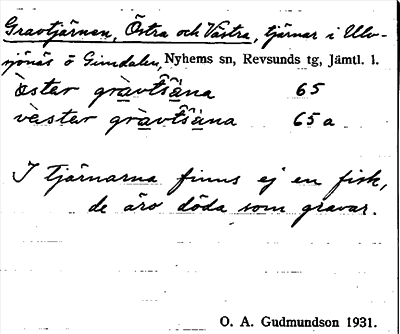 Gravtjärnen, Östra och Västra, tjärnar i Ulv-
sjönäs ö Gimdalen, Nyhems sn, Revsunds tg, Jämtl. l.
öster gràvtšä̀na 65
vèster gràvtšä̀na 65a
I tjärnarna finns ej en fisk,
de äro döda som gravar.
O. A. Gudmundson 1931.